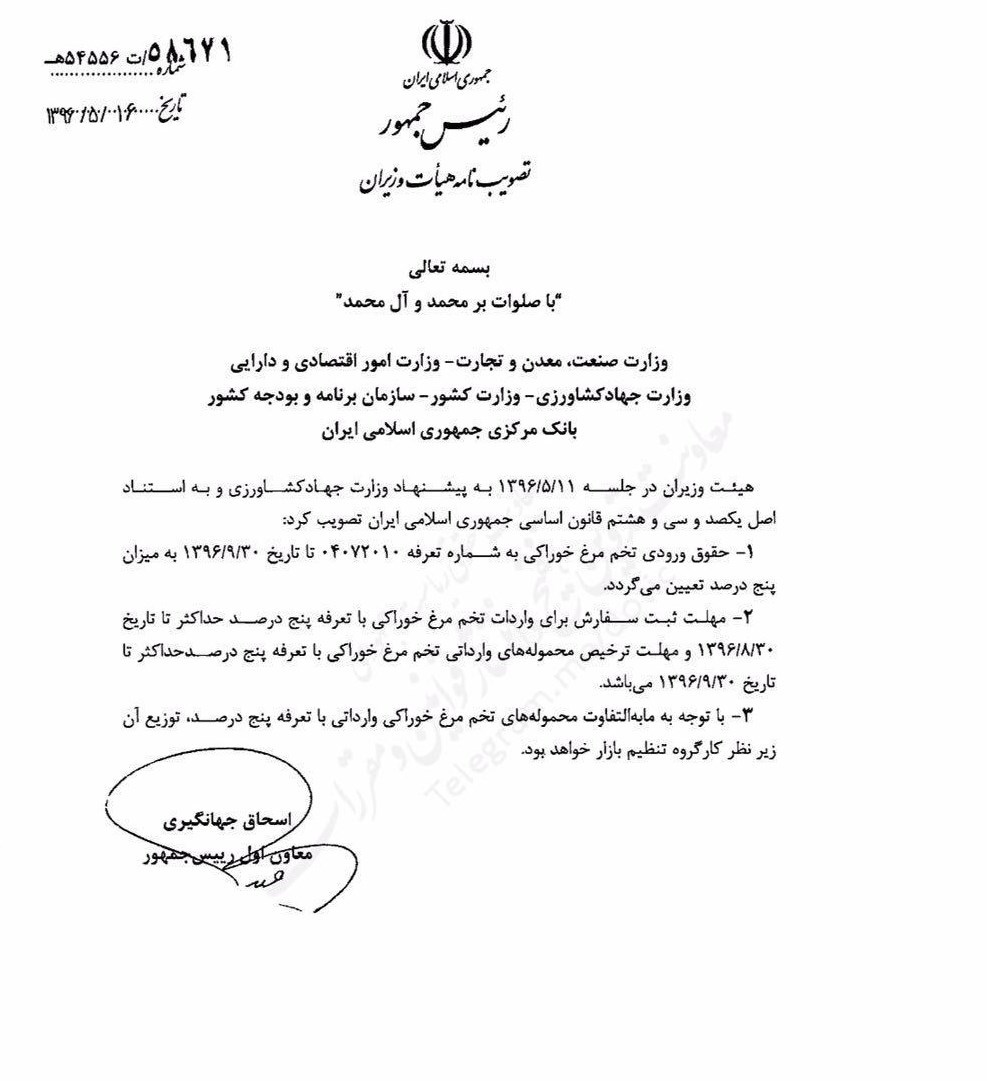 جمهوری اسلامی ایران
رئیس جمهور
تصویب نامه هیأت وزیران
شماره ۵۸۶۷۱/ت ۵۴۵۵۶هـ
تاریخ ۱۳۹۶/۰۵/۱۶
بسمه تعالی
"با صلوات بر محمد و آل محمد"
وزارت صنعت، معدن و تجارت- وزارت امور اقتصادی و دارایی
وزارت جهادکشاورزی- وزارت کشور- سازمان برنامه و بودجه کشور
بانک مرکزی جمهوری اسلامی ایران
هیئت وزیران در جلسه ۱۳۹۶/۵/۱۱ به پیشنهاد وزارت جهادکشاورزی و به استناد
اصل یکصد و سی و هشتم قانون اساسی جمهوری اسلامی ایران تصویب کرد:
۱- حقوق ورودی تخم مرغ خوراکی به شماره تعرفه ۰۴۰۷۲۰۱۰ تا تاریخ ۱۳۹۶/۹/۳۰ به میزان
پنج درصد تعیین می‌گردد.
۲- مهلت ثبت سفارش برای واردات تخم مرغ خوراکی با تعرفه پنج درصد حداکثر تا تاریخ
۱۳۹۶/۸/۳۰ و مهلت ترخیص محموله‌های وارداتی تخم مرغ خوراکی با تعرفه پنج درصدحداکثر تا
تاریخ ۱۳۹۶/۹/۳۰ می‌باشد.
۳- با توجه به مابه‌التفاوت محموله‌های تخم مرغ خوراکی وارداتی با تعرفه پنج درصد، توزیع آن
زیر نظر کارگروه تنظیم بازار خواهد بود.
اسحاق جهانگیری
معاون اول رییس‌جمهور